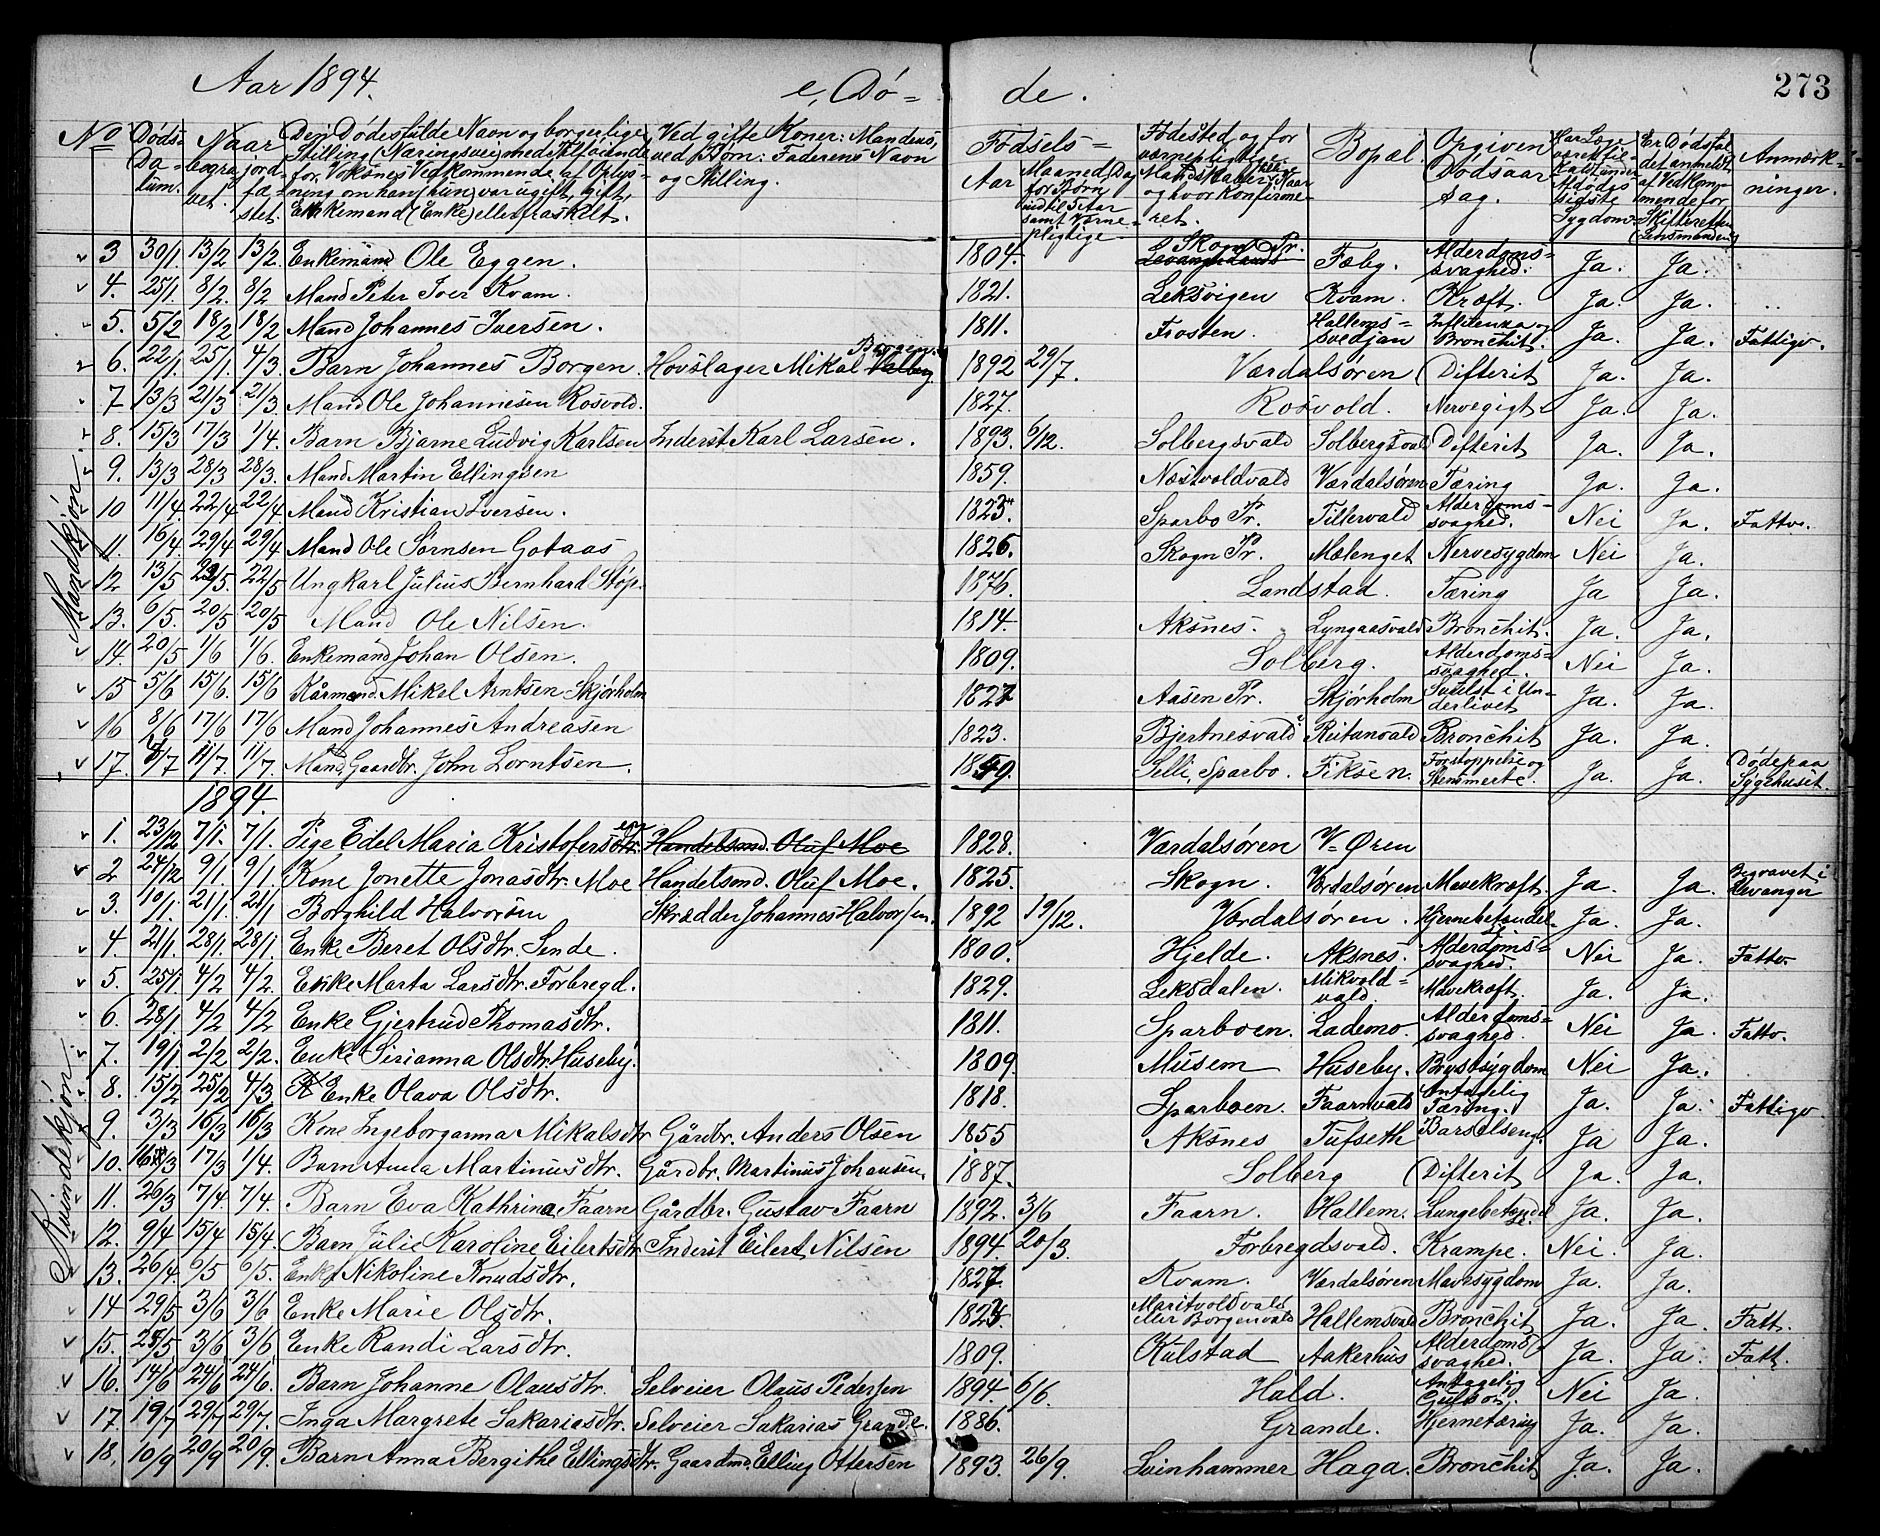 Aar 1894. e, Dö= de. 273
No Døds-Datum. Begravet. Naar jordfæstet. Den Dødes fulde Navn og borgerlige Stilling (Næringsvei) med Tilføiende for Voksnes Vedkommende af Oplysning om han (hun) var ugift, gift, Enkemand (Enke) eller fraskilt. Ved gifte Koner: Mandens, ved Børn: Faderens Navn og Stilling. Fødsels= Aar Maaned, Dag for Børn indtil 5 Aar samt Værnepligtige Fødested og for værnepligtige og hvor Konfirmeret. Bopæl. Opgiven Dødsaarsag. Har Læge været tilkaldt under Afdødes sidste Sygdom Er Dødsfaldet anmeldt af Vedkommende for Skifteretten (Lensmanden) Anmærkninger.
Mandkjøn
3 30/1 13/2 13/2. Enkemand Ole Eggen. 1804. Skogn Pr. Fæby. Alderdoms=svaghed. Ja. Ja.
4. 25/1. 8/2. 8/2 Mand Peter Iver Kvam. 1821. Leksvigen Kvam. Kræft. Ja. Ja. ..
5. 5/2 18/2 18/2 Mand Johannes Iversen. 1811. Frosten. Hallems=svedjan Influenza og Bronchit. Ja. Ja. Fattigv.
6. 22/1 25/1. 4/3. Barn Johannes Borgen. Hovslager Mikal Borgen. 1892 29/7. Værdalsøren Difterit Ja. Ja.
7 13/3 21/3 21/3. Mand Ole Johannesen Rosvold. 1827. Rosvold. Nervegigt Ja. Ja.
8. 15/3 17/3 1/4. Barn Bjarne Ludvig Karlsen Inderst Karl Larsen. 1893. 6/12. Solbergsvald Solbergsvald Difterit Ja. Ja.
9. 13/3 28/3 28/3. Mand Martin Ellingsen 1859. Næstvoldvald Værdalsøren Tæring Ja. Ja.
10 11/4 22/4 22/4. Mand Kristian Iversen. 1825. Sparbo Pr. Tillervald Alderdoms=svaghed. Nei Ja. Fattv.
11. 16/4 29/4 29/4 Mand Ole Sørnsen Gotaas 1826. Skogn Pr. Mælenget Nervesygdom Nei Ja.
12 13/5 22/5 22/5 Ungkarl Julius Bernhard Støp. 1876. Landstad. Tæring Ja Ja.
13. 6/5. 20/5 20/5 Mand Ole Nilsen. 1814. Aksnes. Lyngaasvald Bronchit. Ja. Ja.
14. 20/5 1/6 1/6. Enkemand Johan Olsen. 1809. Solberg. Alderdoms=svaghed. Nei Ja.
15 5/6 15/6. 15/6 Kårmand. Mikel Arntsen Skjørholm 1827 Aasen Pr. Skjørholm Svulst i Underlivet Ja. Ja.
16 8/6 17/6 17/6 Mand Johannes Andreasen 1823. Bjertnesvald Riitanvald Bronchit Ja. Ja.
17. 11/7. 11/7. Mand, Gaardbr. John Lorntsen. Selli, Sparbo. Fiksen. Forstoppelse og Ja. Ja. Døde paa Sygehuset.
1894.
Kvindekjøn.
1. 23/12 7/1. 7/1. Pige Edel Maria Kristofersen Handelsmd. Oluf Moe 1828. Værdalsøren V=Øren
2 24/12 9/1. 9/1 Kone Jonette Jonasdtr. Moe Handelsmd. Oluf Moe. 1825. Skogn. Værdalsøren Mavekræft. Ja. Ja. Begravet i Levanger
3. 10/1. 21/1. 21/1 Borghild Halvorsen Skrædder Johannes Halvorsen. 1892 19/12. Værdalsøren. Hjernebetændelse Ja. Ja.
4. 21/1. 28/1. 28/1. Enke Beret Olsdtr. Sende. 1800. Hjelde. Aksnes. Alderdoms=svaghed. Nei Ja. Fattv.
5. 25/1 4/2 4/2. Enke Marta Larsdtr. Forbregd. 1829. Leksdalen. Mikvold=vald. Mavekræft. Ja. Ja.
6. 28/1 4/2 4/2 Enke Gjertrud Thomasdtr. 1811. Sparboen. Lademo. Alderdoms=svaghed. Nei Ja. Fattv.
7. 19/1 2/2 2/2. Enke Sirianna Olsdtr. Huseby. 1809. Musem Huseby. Brystsygdom Nei Ja.
8. 15/2 25/2 4/3 Enke Olava Olsdtr. 1818. Sparboen. Faarnvald Antagelig Tæring. Ja. Ja. Fattigv.
9. 3/3 16/3 16/3 Kone Ingeborganna Mikalsdtr Gårdbr. Anders Olsen 1855 Aksnes Tufseth Barselseng. Ja Ja.
10. 17/3 1/4. Barn Anna Martinusdtr. Gårdbr. Martinus Johansen. 1887. Solberg Difterit Ja. Ja.
11. 26/3 7/4. 7/4. Barn Eva Kathrina Faarn Gårdbr. Gustav Faarn 1892. 3/6 Faarn. Hallem. Lungebetændelse Ja. Ja.
12. 9/4 15/4 15/4. Barn Julie Karoline Eilertsdtr Inderst Eilert Nilsen 1894. 20/3. Forbregdsvald. Krampe. Nei. Ja.
13. 26/4 6/5 6/5. Enke Nikoline Knudsdtr. 1827. Kvam. Værdalsøren Mavesygdom Ja. Ja.
14 29/5 3/6 3/6 Enke Marie Olsdtr. 1823. Maritvoldvald eller Borgenvald Hallemsvald Bronchit Ja. Ja. Fatt.
15. 28/5 3/6 3/6 Enke Randi Larsdtr. 1809. Kulstad Aakerhus Alderdomssvaghed. Ja. Ja. Fatt.
16. 14/6 24/6 24/6. Barn Johanne Olausdtr. Selveier Olaus Pedersen 1894 6/6. Hald. Antagelig Gulsot. Nei Ja.
17. 19/7 29/7 29/7. Inga Margrete Sakariasdtr. Selveier Sakarias Grande. 1886. Grande. Hjernetæring Ja. Ja.
18, 10/9 20/9 20/9. Barn Anna Bergithe Ellingsdtr. Gaardmd. Elling Ottersen 1893. 26/9. Svinhammer Haga. Bronchit Ja. Ja.